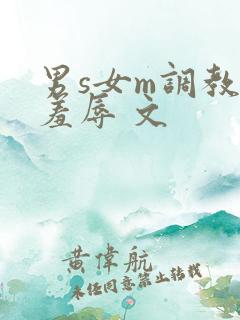 男s女m調教
羞辱 文
黄偉航
未经同意禁止转载